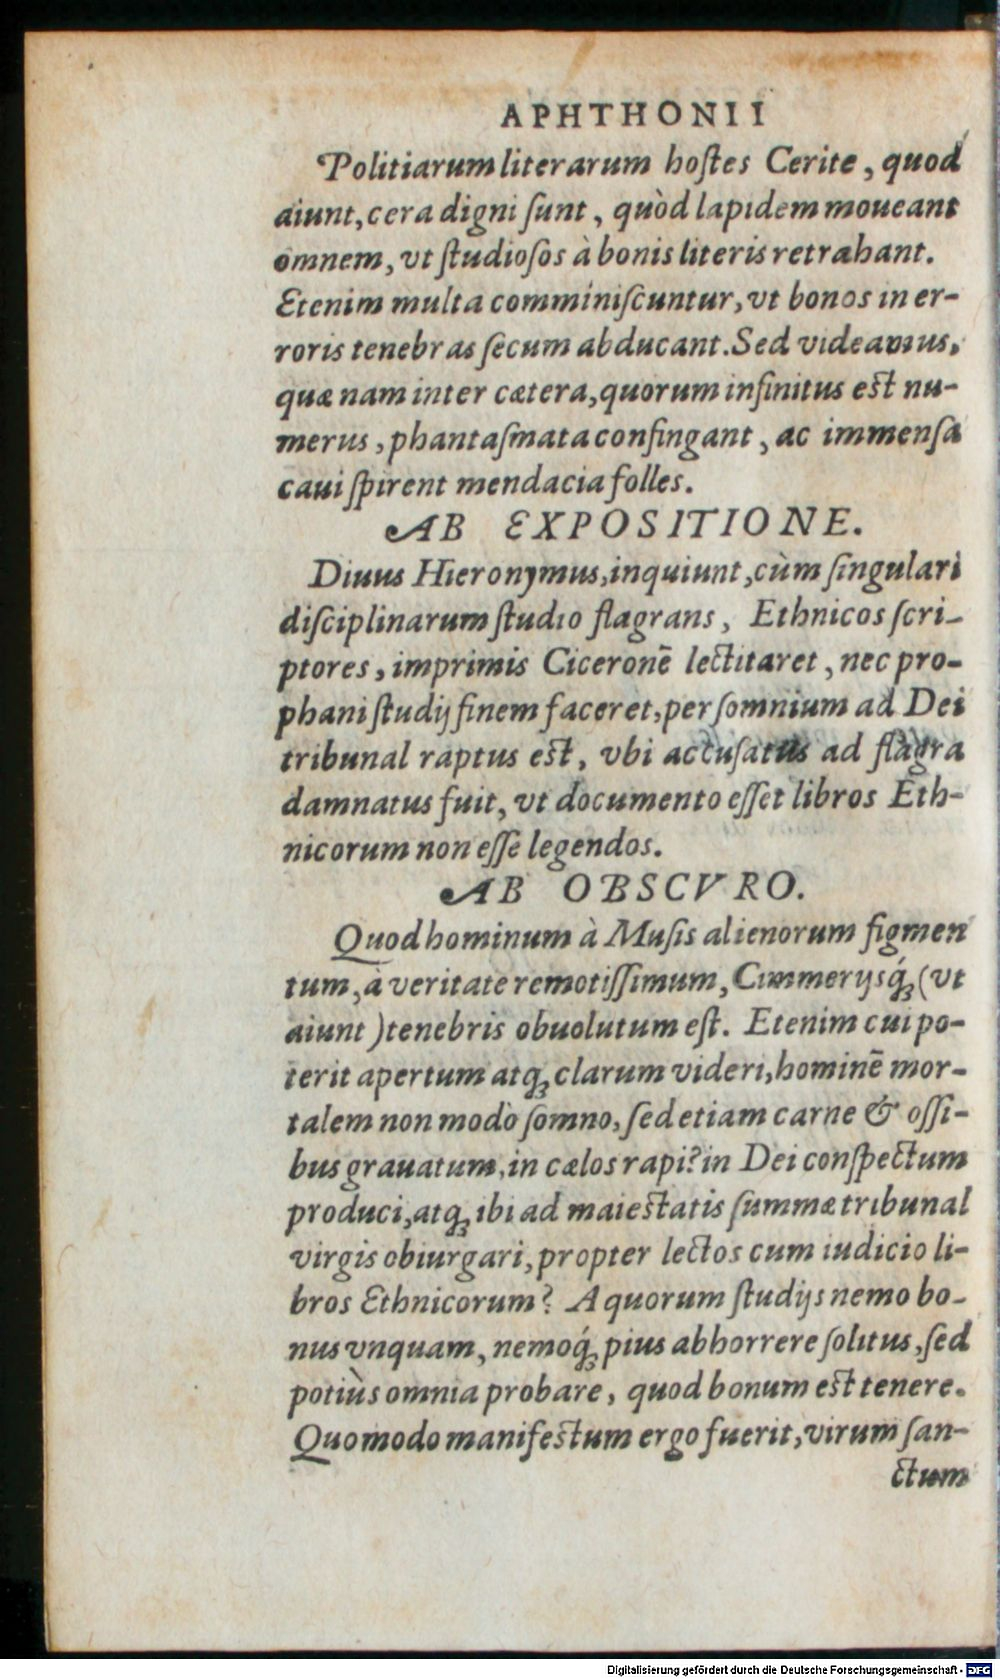 APHTHONII
Politiarum literarum hoſtes Cerite, quod
aiunt, cera digni ſunt, quòd lapidem moueant
omnem, vt ſtudioſos à bonis literis retrahant.
Etenim multa comminiſcuntur, vt bonos in er-
roris tenebras ſecum abducant. Sed videamus,
quæ nam inter cætera, quorum infinitus eſt nu-
merus, phantaſmata confingant, ac immenſa
caui ſpirent mendacia folles.
AB EXPOSITIONE.
Diuus Hieronymus, inquiunt, cùm ſingulari
diſciplinarum ſtudio flagrans, Ethnicos ſcri-
ptores, imprimis Ciceronē lectitaret, nec pro-
phani ſtudij finem faceret, per ſomnium ad Dei
tribunal raptus eſt, vbi accuſatus ad flagra
damnatus fuit, vt documento eſſet libros Eth-
nicorum non eſſe legendos.
AB OBSCVRO.
Quod hominum à Muſis alienorum figmen
tum, à veritate remotiſſimum, Cimmerijsq́ꝫ (vt
aiunt) tenebris obuolutum eſt. Etenim cui po-
terit apertum atqꝫ clarum videri, hominē mor-
talem non modò ſomno, ſed etiam carne & oſſi-
bus grauatum, in cælos rapi? in Dei conſpectum
produci, atqꝫ ibi ad maieſtatis ſummæ tribunal
virgis obiurgari, propter lectos cum iudicio li-
bros Ethnicorum? A quorum ſtudijs nemo bo-
nus vnquam, nemoq́ꝫ pius abhorrere ſolitus, ſed
potiùs omnia probare, quod bonum eſt tenere.
Quomodo manifeſtum ergo fuerit, virum ſan-
ctum
Digitalisierung gefördert durch die Deutsche Forschungsgemeinschaft - DFG